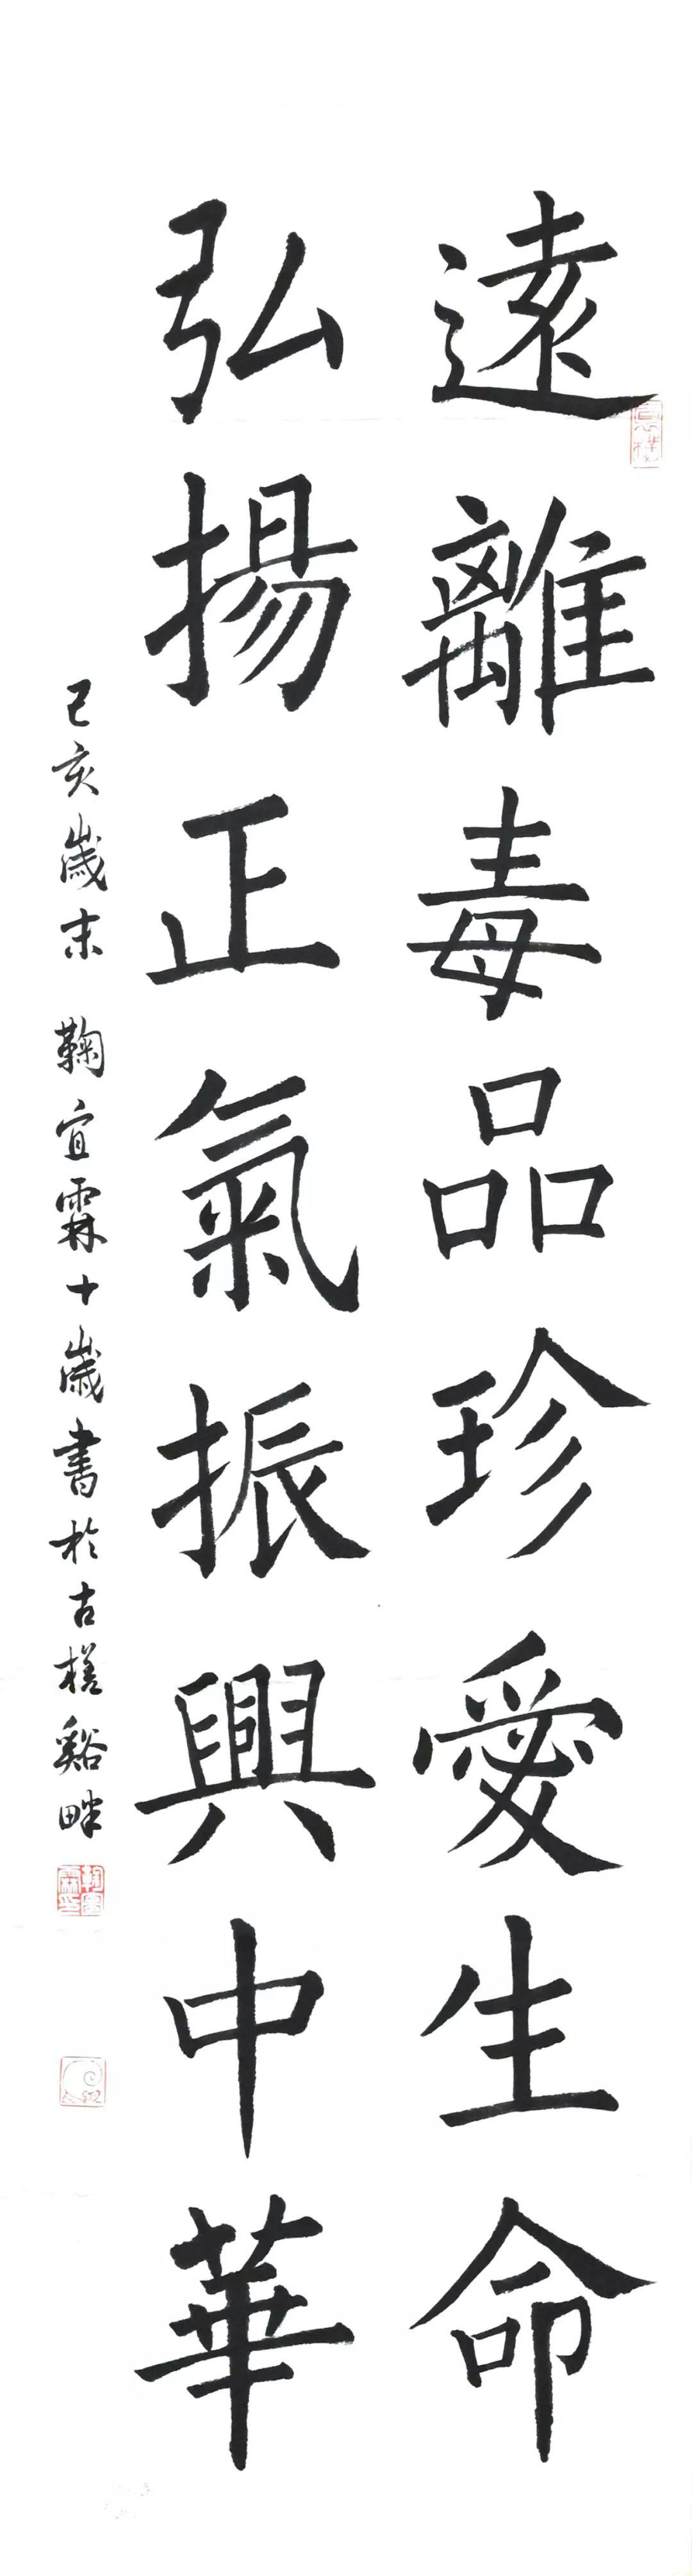 遠離毒品珍愛生命
弘揚正氣振興中華
己亥歲末 鞠宜霖十歲書於古槎谿畔